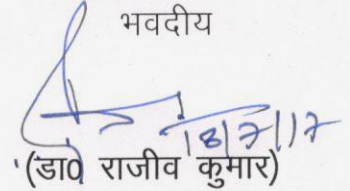 भवदीय
18/7/17
(डा0 राजीव कुमार)